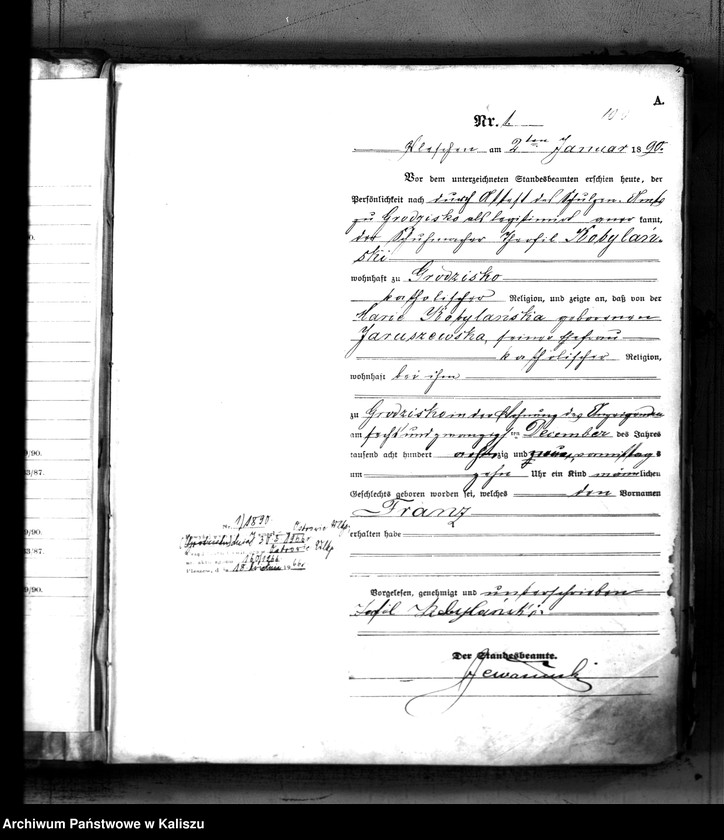 A.
Nr. 1.
Pleschen am 2ten Januar 1890.
Vor dem unterzeichneten Standesbeamten erschien heute, der
Persönlichkeit nach durch Attest des Schulzen-Amts
zu Grodzisko als legitimirt aner kannt,
der Schuhmacher Theofil Kobylań-
ski
wohnhaft zu Grodzisko
katholischer Religion, und zeigte an, daß von der
Marie Kobylańska geborenen
Januszewska, seiner Ehefrau
katholischer Religion,
wohnhaft bei ihm
zu Grodzisko in der Wohnung des Anzeigenden
am sechs und zwanzigsten December des Jahres
tausend acht hundert achtzig und neun, vormittags
um zehn Uhr ein Kind männlichen
Geschlechts geboren worden sei, welches den Vornamen
Franz
erhalten habe
Nr. 1/1890
Ostrowie Wlkp.
Ostrowie Wlkp.
Vorgelesen, genehmigt und unterschrieben
Kobylański
Der Standesbeamte.
9/90.
3/87.
9/90.
3/87.
9/90.
Archiwum Państwowe w Kaliszu